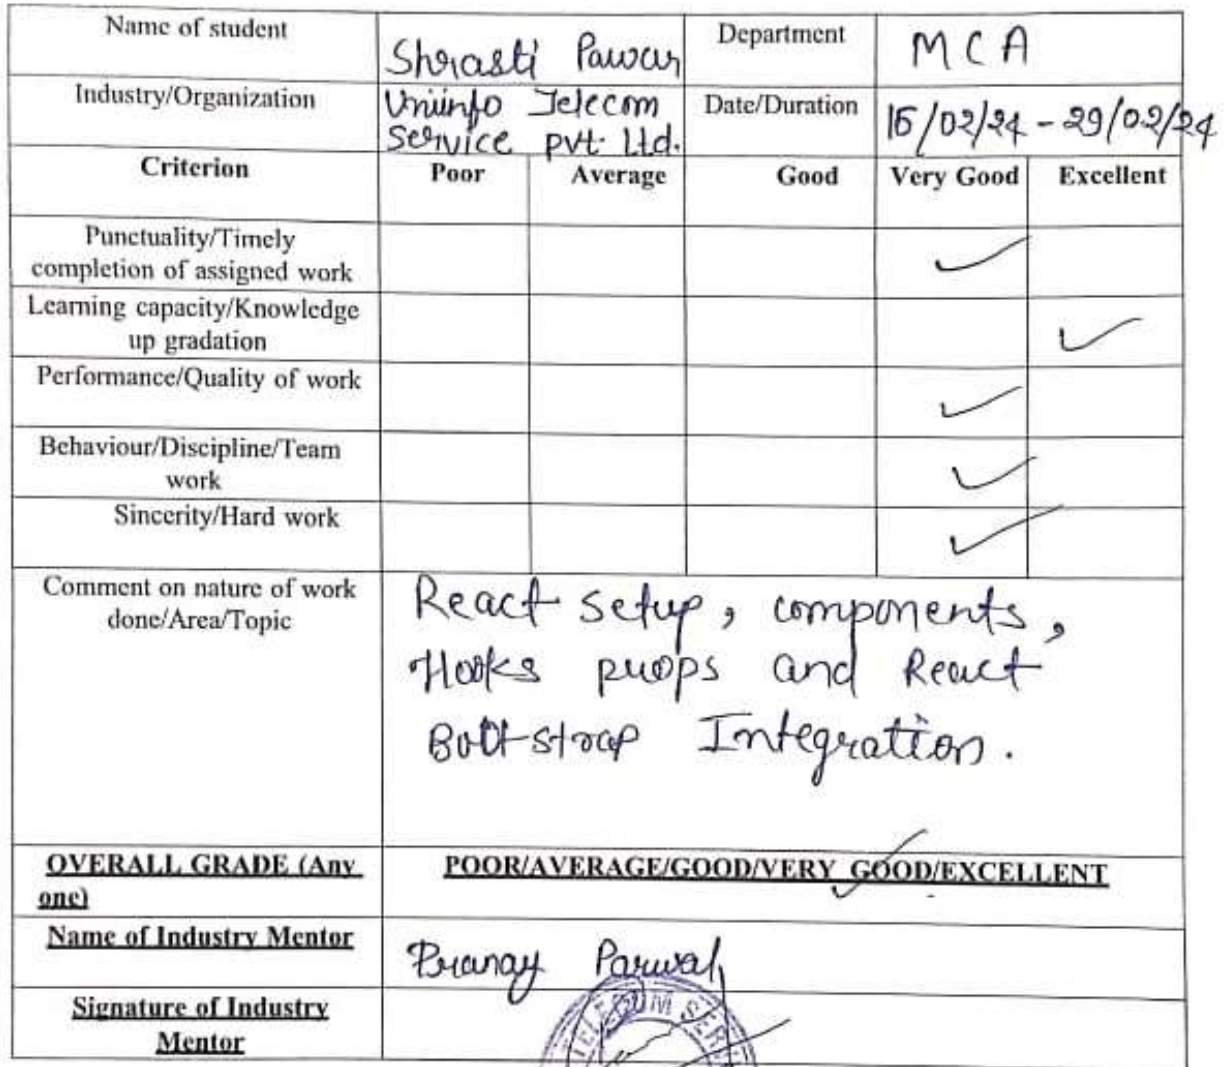 Name of student
Shrasti Pawar
Department
MCA
Industry/Organization
Uniinfo Telecom
Service pvt. Ltd.
Date/Duration
15/02/24 - 29/02/24
Criterion Poor Average Good Very Good Excellent
Punctuality/Timely
completion of assigned work
Learning capacity/Knowledge
up gradation
Performance/Quality of work
Behaviour/Discipline/Team
work
Sincerity/Hard work
Comment on nature of work
done/Area/Topic
React setup, components,
Hooks props and React
Bootstrap Integration.
OVERALL GRADE (Any
one)
POOR/AVERAGE/GOOD/VERY GOOD/EXCELLENT
Name of Industry Mentor
Pranay Parwal
Signature of Industry
Mentor
TELECOM SER